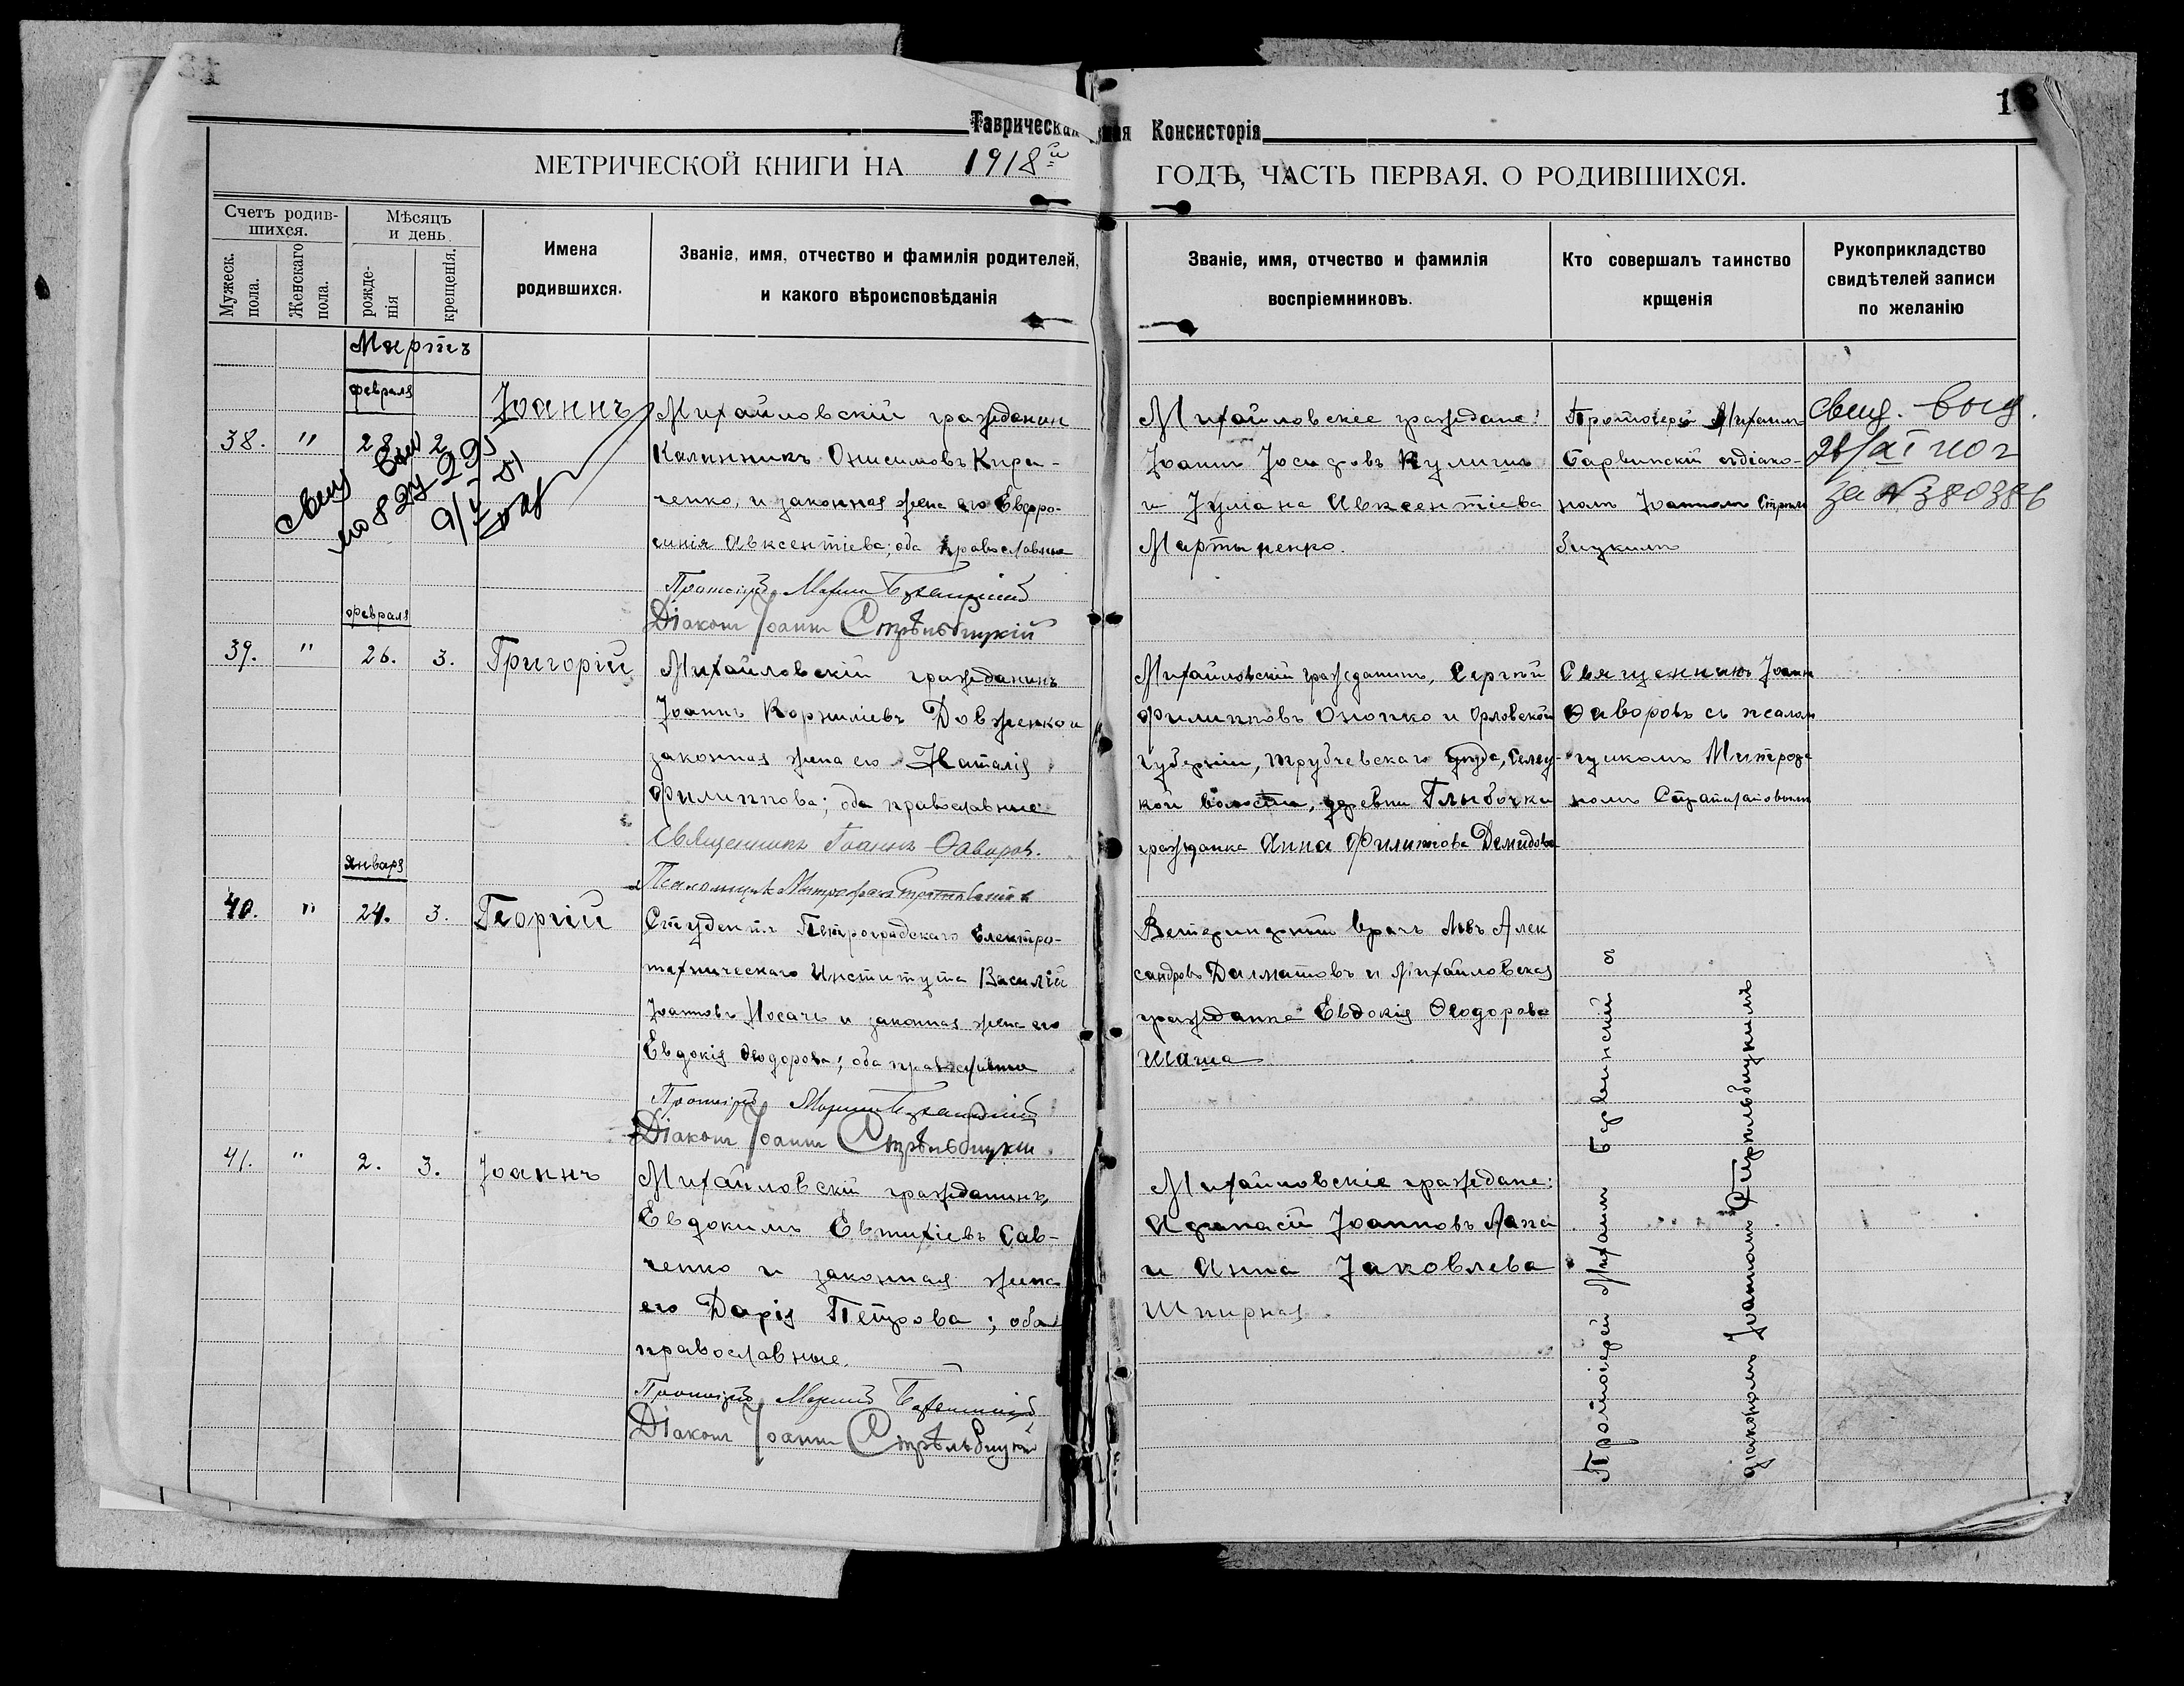 Таврическая
ная Консисторія
МЕТРИЧЕСКОЙ КНИГИ НА 1918й
ГОДѢ, ЧАСТЬ ПЕРВАЯ. О РОДИВШИХСЯ.
Счетъ родив-
шихся.
Мужеск.
пола.
Женскаго
пола.
Мѣсяцъ
и день
рожде-
нія
крещенія.
Имена
родившихся.
Званіе, имя, отчество и фамилія родителей,
и какого вѣроисповѣданія
Званіе, имя, отчество и фамилія
воспріемниковъ.
Кто совершалъ таинство
крщенія
Рукоприкладство
свидѣтелей записи
по желанію
Мартъ
февраля
38. " 28 2 Іоаннъ
Михайловскій гражданин
Каллиникъ Онисимовъ Кири-
ченко, и законная жена его Евфро-
синія Авксентіева; оба православные
Протоіерей
Діаконъ Іоаннъ Стрѣльбицкій
Михайловскіе граждане:
Іоаннъ Іосифовъ Кулишъ
и Іуліана Авксентіева
Мартыненко.
Протоіерей Михаилъ
Барвинскій съ діако-
номъ Іоанномъ Стрѣль
бицкимъ
свид. выд.
за № 380386
февраля
39. " 26. 3. Григорій
Михайловскій гражданинъ
Іоаннъ Корниліевъ Довженко и
законная жена его Наталія
Филиппова; оба православные
Священникъ Іоаннъ Ѳаворовъ.
Псаломщикъ Митрофанъ
Михайловскій гражданинъ, Сергій
Филипповъ Онопко и Орловской
губерніи, трубчевскаго уѣзда, Селец-
кой волости, деревни Глыбочки
гражданка Анна Филиппова Демидова
Священникъ Іоаннъ
Ѳаворовъ съ псалом
щикомъ Митрофа
номъ
января
40. " 24. 3. Георгій
Студентъ Петроградскаго Електро-
техническаго Института Василій
Іоанновъ Носачъ и законная жена его
Евдокія Ѳеодорова; оба православные
Протоіерей
Діаконъ Іоаннъ Стрѣльбицкій
Ветеринарный врачъ Левъ Алек
сандровъ Далматовъ и Михайловская
гражданка Евдокія Ѳеодорова
Шаша
41. " 2. 3. Іоаннъ
Михайловскій гражданинъ,
Евдокимъ Евтихіевъ Сав-
ченко и законная жена
его Дарія Петрова; оба
православные.
Протоіерей
Діаконъ Іоаннъ Стрѣльбицкій
Михайловскіе граждане:
Афанасій Іоанновъ Лапа
и Анна Іаковлева
Шпирная.
Протоіерей Михаилъ Барвинскій съ
діакономъ Іоанномъ Стрѣльбицкимъ